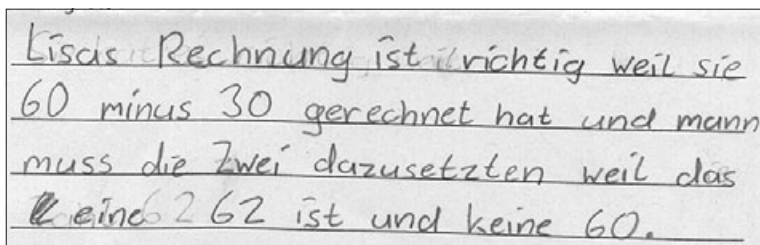 Lisas Rechnung ist richtig weil sie
60 minus 30 gerechnet hat und mann
muss die Zwei dazusetzten weil das
eine 62 ist und keine 60.